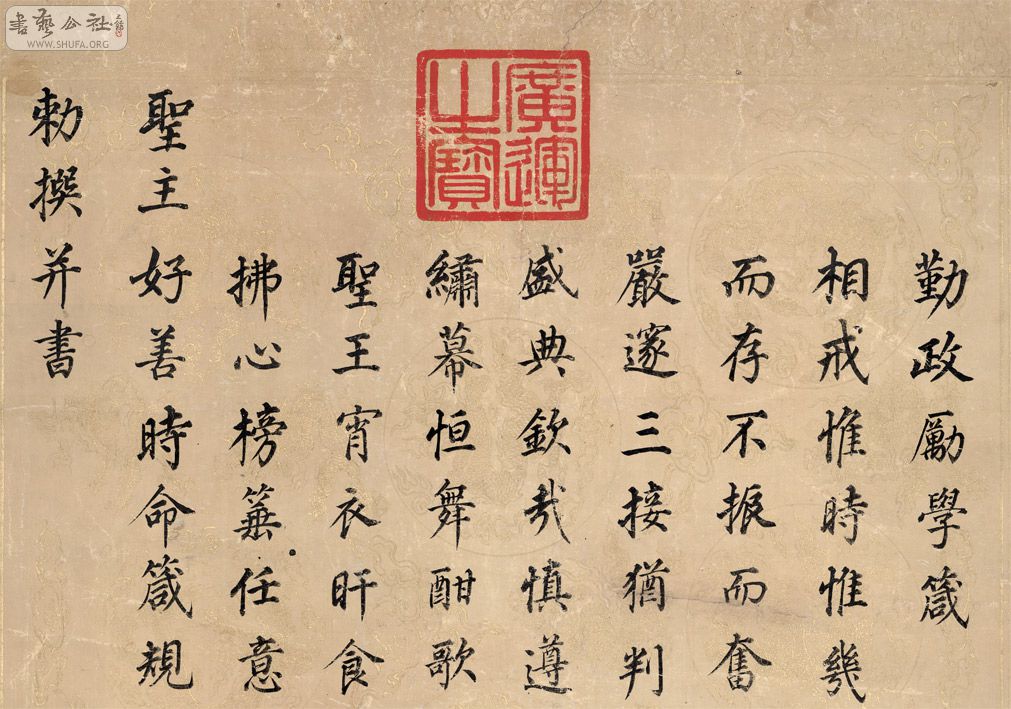 書藝公社
WWW.SHUFA.ORG
廣運之寶
勤政勵學箴
相戒惟時惟幾
而存不振而奮
嚴邃三接猶判
盛典欽哉慎遵
繡幕恒舞酣歌
聖王宵衣旰食
拂心榜箠任意
聖主好善時命箴規
勅撰并書